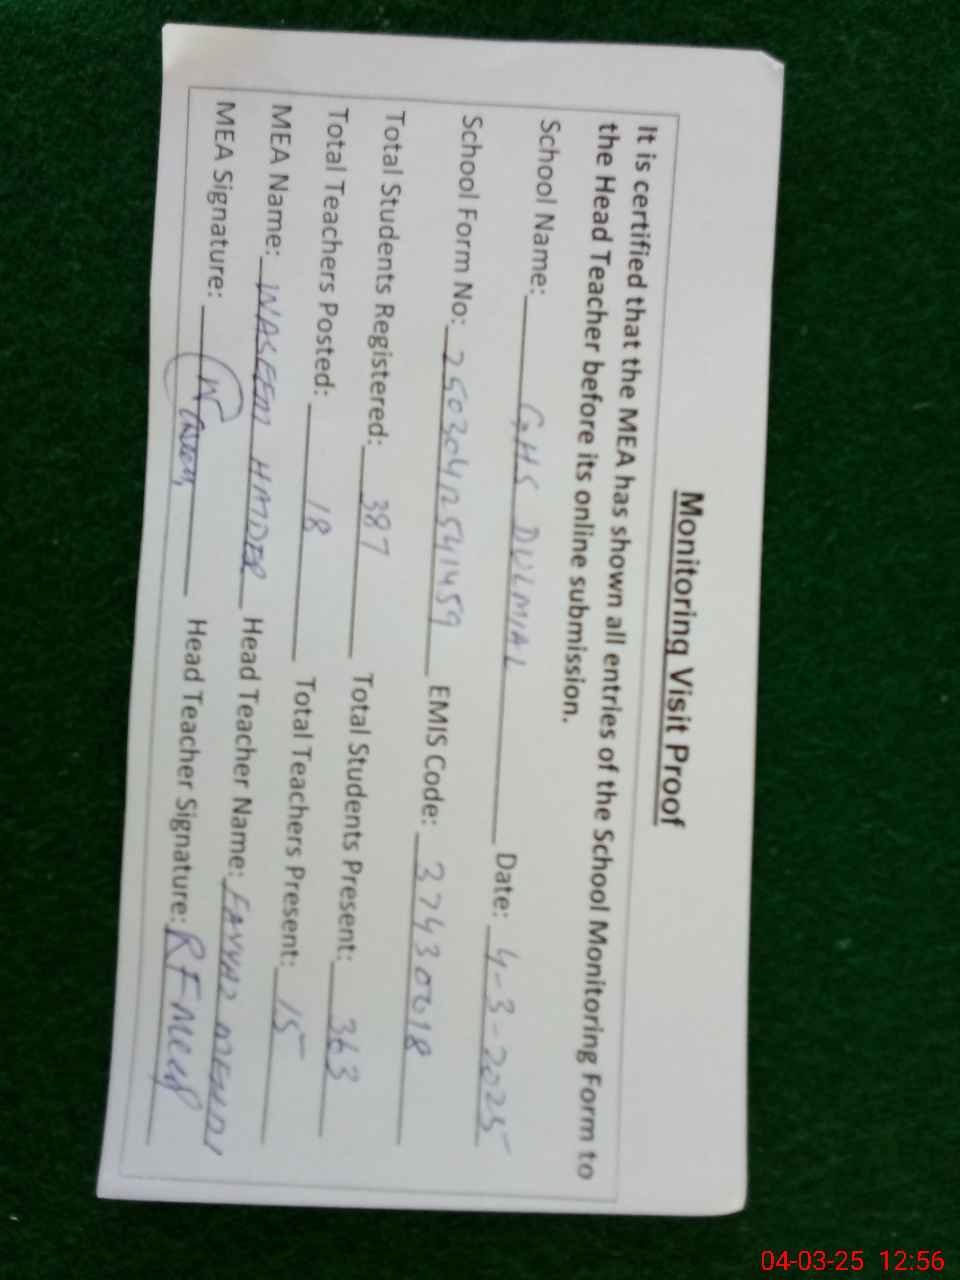 Monitoring Visit Proof
It is certified that the MEA has shown all entries of the School Monitoring Form to
the Head Teacher before its online submission.
School Name: GHS DULMIAL Date: 4-3-2025
School Form No: 25030412541459 EMIS Code: 37430018
Total Students Registered: 387 Total Students Present: 363
Total Teachers Posted: 18 Total Teachers Present: 15
MEA Name: WASEEM HAIDER Head Teacher Name: FAYYAZ
MEA Signature: Waseem Head Teacher Signature:
04-03-25 12:56